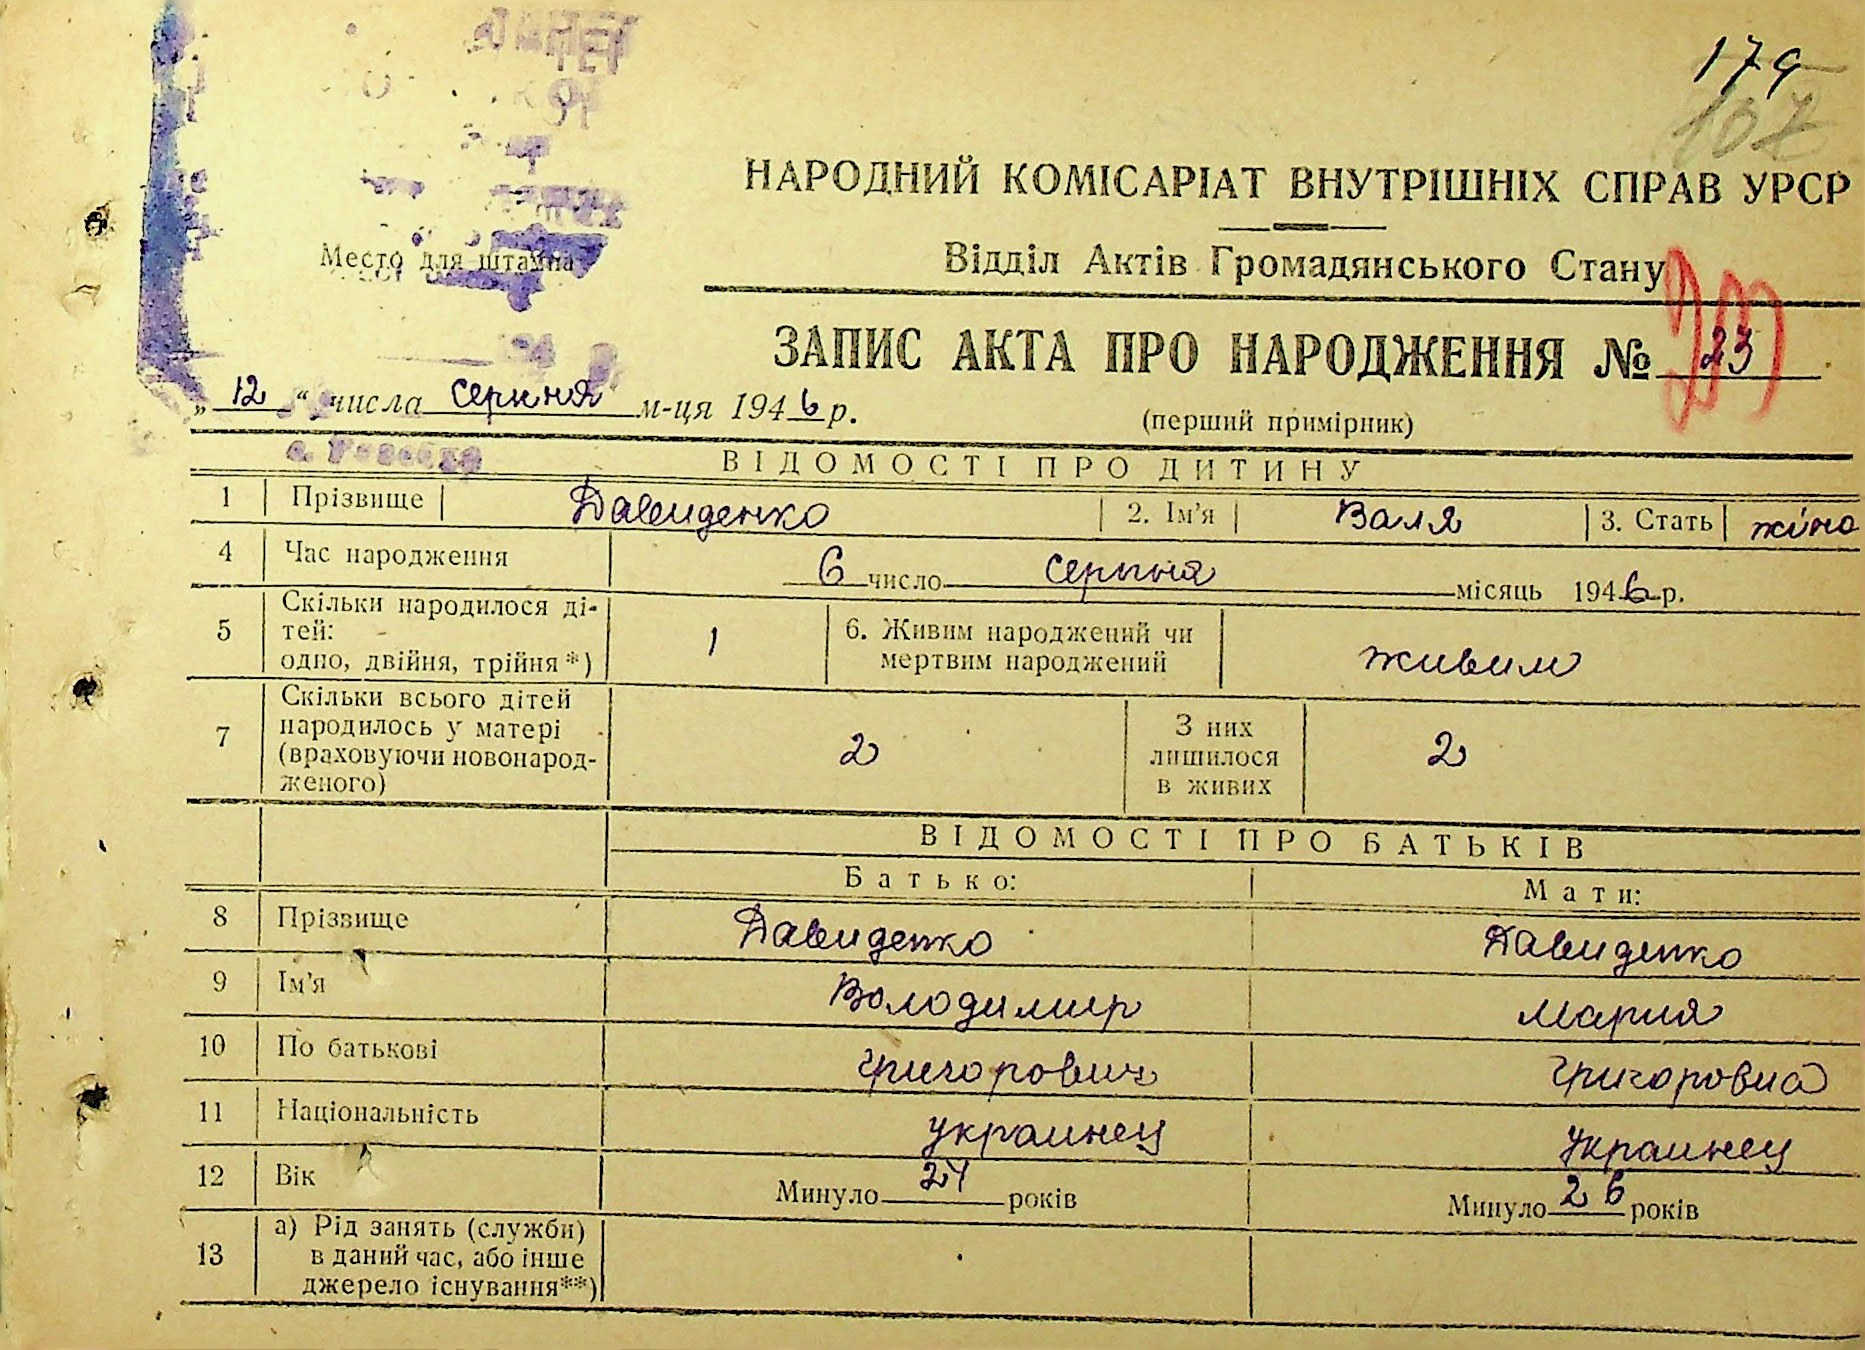 179
107
НАРОДНИЙ КОМІСАРІАТ ВНУТРІШНІХ СПРАВ УРСР
Место для штампа
Відділ Актів Громадянського Стану
ЗАПИС АКТА ПРО НАРОДЖЕННЯ № 23
„12“ числа серпня м-ця 1946 р.
(перший примірник)
ВІДОМОСТІ ПРО ДИТИНУ
1 Прізвище Давиденко 2. Ім'я Валя 3. Стать жіно
4 Час народження 6 число серпня місяць 1946 р.
5 Скільки народилося ді-
тей:
одно, двійня, трійня*) 1 6. Живим народжений чи
мертвим народжений живим
7 Скільки всього дітей
народилось у матері
(враховуючи новонарод-
женого) 2 З них
лишилося
в живих 2
ВІДОМОСТІ ПРО БАТЬКІВ
Батько: Мати:
8 Прізвище Давиденко Давиденко
9 Ім'я Володимир Мария
10 По батькові Григорович Григоровна
11 Національність украинец украинец
12 Вік Минуло 24 років Минуло 26 років
13 а) Рід занять (служби)
в даний час, або інше
джерело існування**)